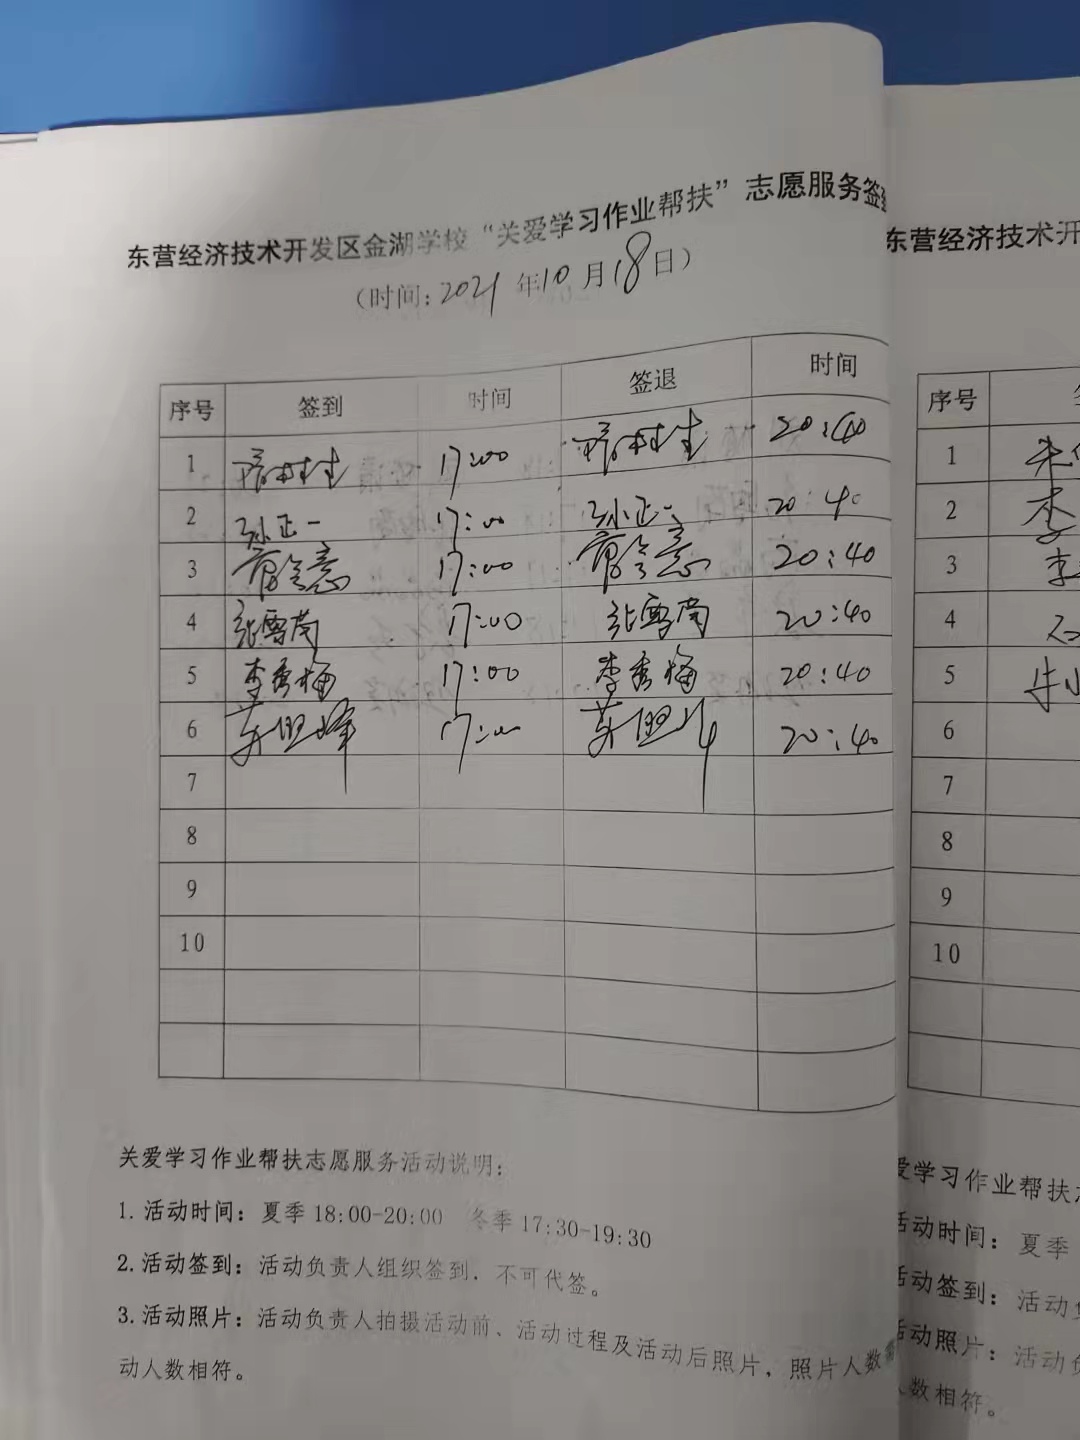 东营经济技术开发区金湖学校“关爱学习作业帮扶”志愿服务签
(时间:2021年10月18日)
序号 签到 时间 签退 时间
1 17:00 20:40
2 孙正一 17:00 孙正一 20:40
3 17:00 20:40
4 张雪菊 17:00 张雪菊 20:40
5 李秀梅 17:00 李秀梅 20:40
6 17:00 20:40
7
8
9
10
关爱学习作业帮扶志愿服务活动说明:
1.活动时间:夏季18:00-20:00 冬季17:30-19:30
2.活动签到:活动负责人组织签到,不可代签。
3.活动照片:活动负责人拍摄活动前、活动过程及活动后照片,照片人数需
动人数相符。
东营经济技术开
序号
1 朱
2 李
3 李
4 石
5
6
7
8
9
10
爱学习作业帮扶志
活动时间:夏季
活动签到:活动负
活动照片:活动负
人数相符。